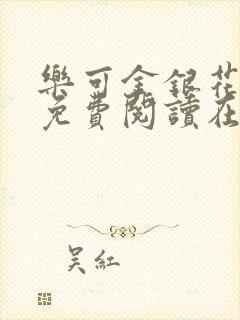 樂可金銀花
免費閱讀在
吴紅